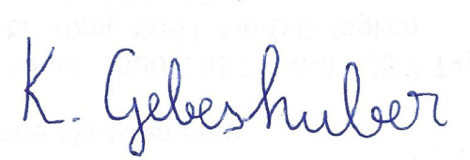 K. Gebeshuber